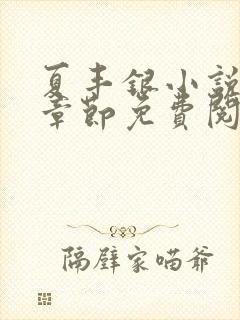 夏丰银小说
章节免费阅
隔壁家喵爷